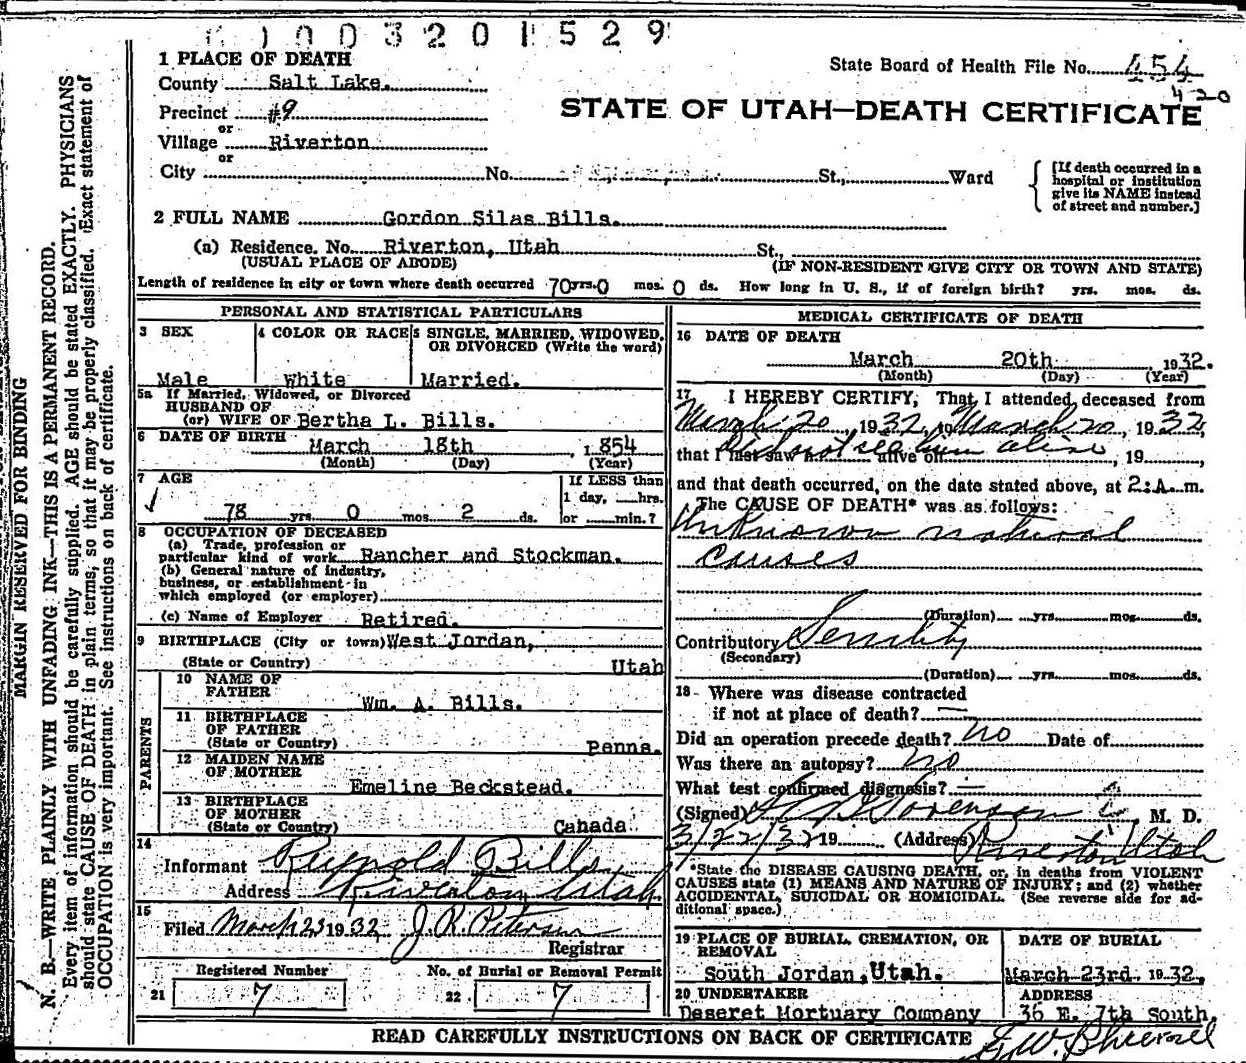 1003201529
1 PLACE OF DEATH
State Board of Health File No. 454
420
County Salt Lake.
STATE OF UTAH—DEATH CERTIFICATE
Precinct #9
or
Village Riverton
or
City No. St., Ward
[If death occurred in a
hospital or institution
give its NAME instead
of street and number.]
2 FULL NAME Gordon Silas Bills.
(a) Residence. No. Riverton, Utah St.,
(USUAL PLACE OF ABODE) (IF NON-RESIDENT GIVE CITY OR TOWN AND STATE)
Length of residence in city or town where death occurred 70 yrs. 0 mos. 0 ds. How long in U. S., if of foreign birth? yrs. mos. ds.
PERSONAL AND STATISTICAL PARTICULARS
3 SEX 4 COLOR OR RACE 5 SINGLE, MARRIED, WIDOWED,
OR DIVORCED (Write the word)
Male White Married.
5a If Married, Widowed, or Divorced
HUSBAND OF
(or) WIFE OF Bertha L. Bills.
6 DATE OF BIRTH March 18th, 1854
(Month) (Day) (Year)
7 AGE If LESS than
1 day, hrs.
78 yrs. 0 mos. 2 ds. or min.?
8 OCCUPATION OF DECEASED
(a) Trade, profession or
particular kind of work Rancher and Stockman.
(b) General nature of industry,
business, or establishment in
which employed (or employer)
(c) Name of Employer Retired.
9 BIRTHPLACE (City or town) West Jordan,
(State or Country) Utah
PARENTS
10 NAME OF
FATHER
Wm. A. Bills.
11 BIRTHPLACE
OF FATHER
(State or Country) Penna.
12 MAIDEN NAME
OF MOTHER
Emeline Beckstead.
13 BIRTHPLACE
OF MOTHER
(State or Country) Canada
14
Informant Reynold Bills
Address Riverton Utah
15
Filed March 23 1932 J. R. Peterson
Registrar
Registered Number No. of Burial or Removal Permit
21 7 22 7
MEDICAL CERTIFICATE OF DEATH
16 DATE OF DEATH
March 20th 1932.
(Month) (Day) (Year)
17 I HEREBY CERTIFY, That I attended deceased from
March 20, 1932, to March 20, 1932,
did not see him alive
that I last saw h alive on , 19 ,
and that death occurred, on the date stated above, at 2:A.m.
The CAUSE OF DEATH* was as follows:
Unknown natural
causes
(Duration) yrs. mos. ds.
Contributory Senility
(Secondary)
(Duration) yrs. mos. ds.
18 Where was disease contracted
if not at place of death? —
Did an operation precede death? no Date of
Was there an autopsy? no
What test confirmed diagnosis? —
(Signed) Sorenson, M. D.
3/22/32 19 (Address) Riverton Utah
*State the DISEASE CAUSING DEATH, or, in deaths from VIOLENT
CAUSES state (1) MEANS AND NATURE OF INJURY; and (2) whether
ACCIDENTAL, SUICIDAL OR HOMICIDAL. (See reverse side for ad-
ditional space.)
19 PLACE OF BURIAL, CREMATION, OR
REMOVAL
DATE OF BURIAL
South Jordan, Utah. March 23rd. 1932.
20 UNDERTAKER ADDRESS
Deseret Mortuary Company 36 E. 7th South.
READ CAREFULLY INSTRUCTIONS ON BACK OF CERTIFICATE
MARGIN RESERVED FOR BINDING
N. B.—WRITE PLAINLY WITH UNFADING INK—THIS IS A PERMANENT RECORD.
Every item of information should be carefully supplied. AGE should be stated EXACTLY. PHYSICIANS
should state CAUSE OF DEATH in plain terms, so that it may be properly classified. Exact statement of
OCCUPATION is very important. See instructions on back of certificate.